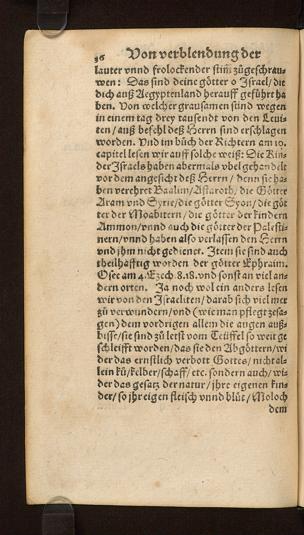 36 Von verblendung der
lauter vnnd frolockender stim̃ zůgeschrau-
wen: Das sind deine götter o Israel/ die
dich auß Aegyptenland herauff gefůhrt ha
ben. Von welcher grausamen sünd wegen
in einem tag drey tausendt von den Leui-
ten/ auß befehl deß Herrn sind erschlagen
worden. Vnd im bůch der Richtern am 10.
capitel lesen wir auff solche weiß: Die Kin-
der Israels haben abermals vbel gehandelt
vor dem angesicht deß Herrn/ denn sie ha-
ben verehret Baalim/ Astaroth/ die Götter
Aram vnd Syrie/ die götter Syon/ die göt
ter der Moabitern/ die götter der kindern
Ammon/ vnnd auch die götter der Palesti-
nern/ vnnd haben also verlassen den Herrn
vnd jhm nicht gedienet. Item sie sind auch
theilhafftig worden der götter Ephraim.
Osee am 4. Ezech. 8. 18. vnd sonst an viel an-
dern orten. Ja noch wol ein anders lesen
wir von den Israeliten/ darab sich viel mer
zů verwundern/ vnd (wie man pflegt zesa-
gen) dem vordrigen allem die augen auß-
bisse/ sie sind zů letst vom Teüffel so weit ge
schleifft worden/ das sie den Abgöttern/ wi
der das ernstlich verbott Gottes/ nicht al-
lein kü/ kelber/ schaff/ etc. sondern auch/ wi-
der das gesatz der natur/ jhre eigenen kin-
der/ so jhr eigen fleisch vnnd blůt/ Moloch
dem